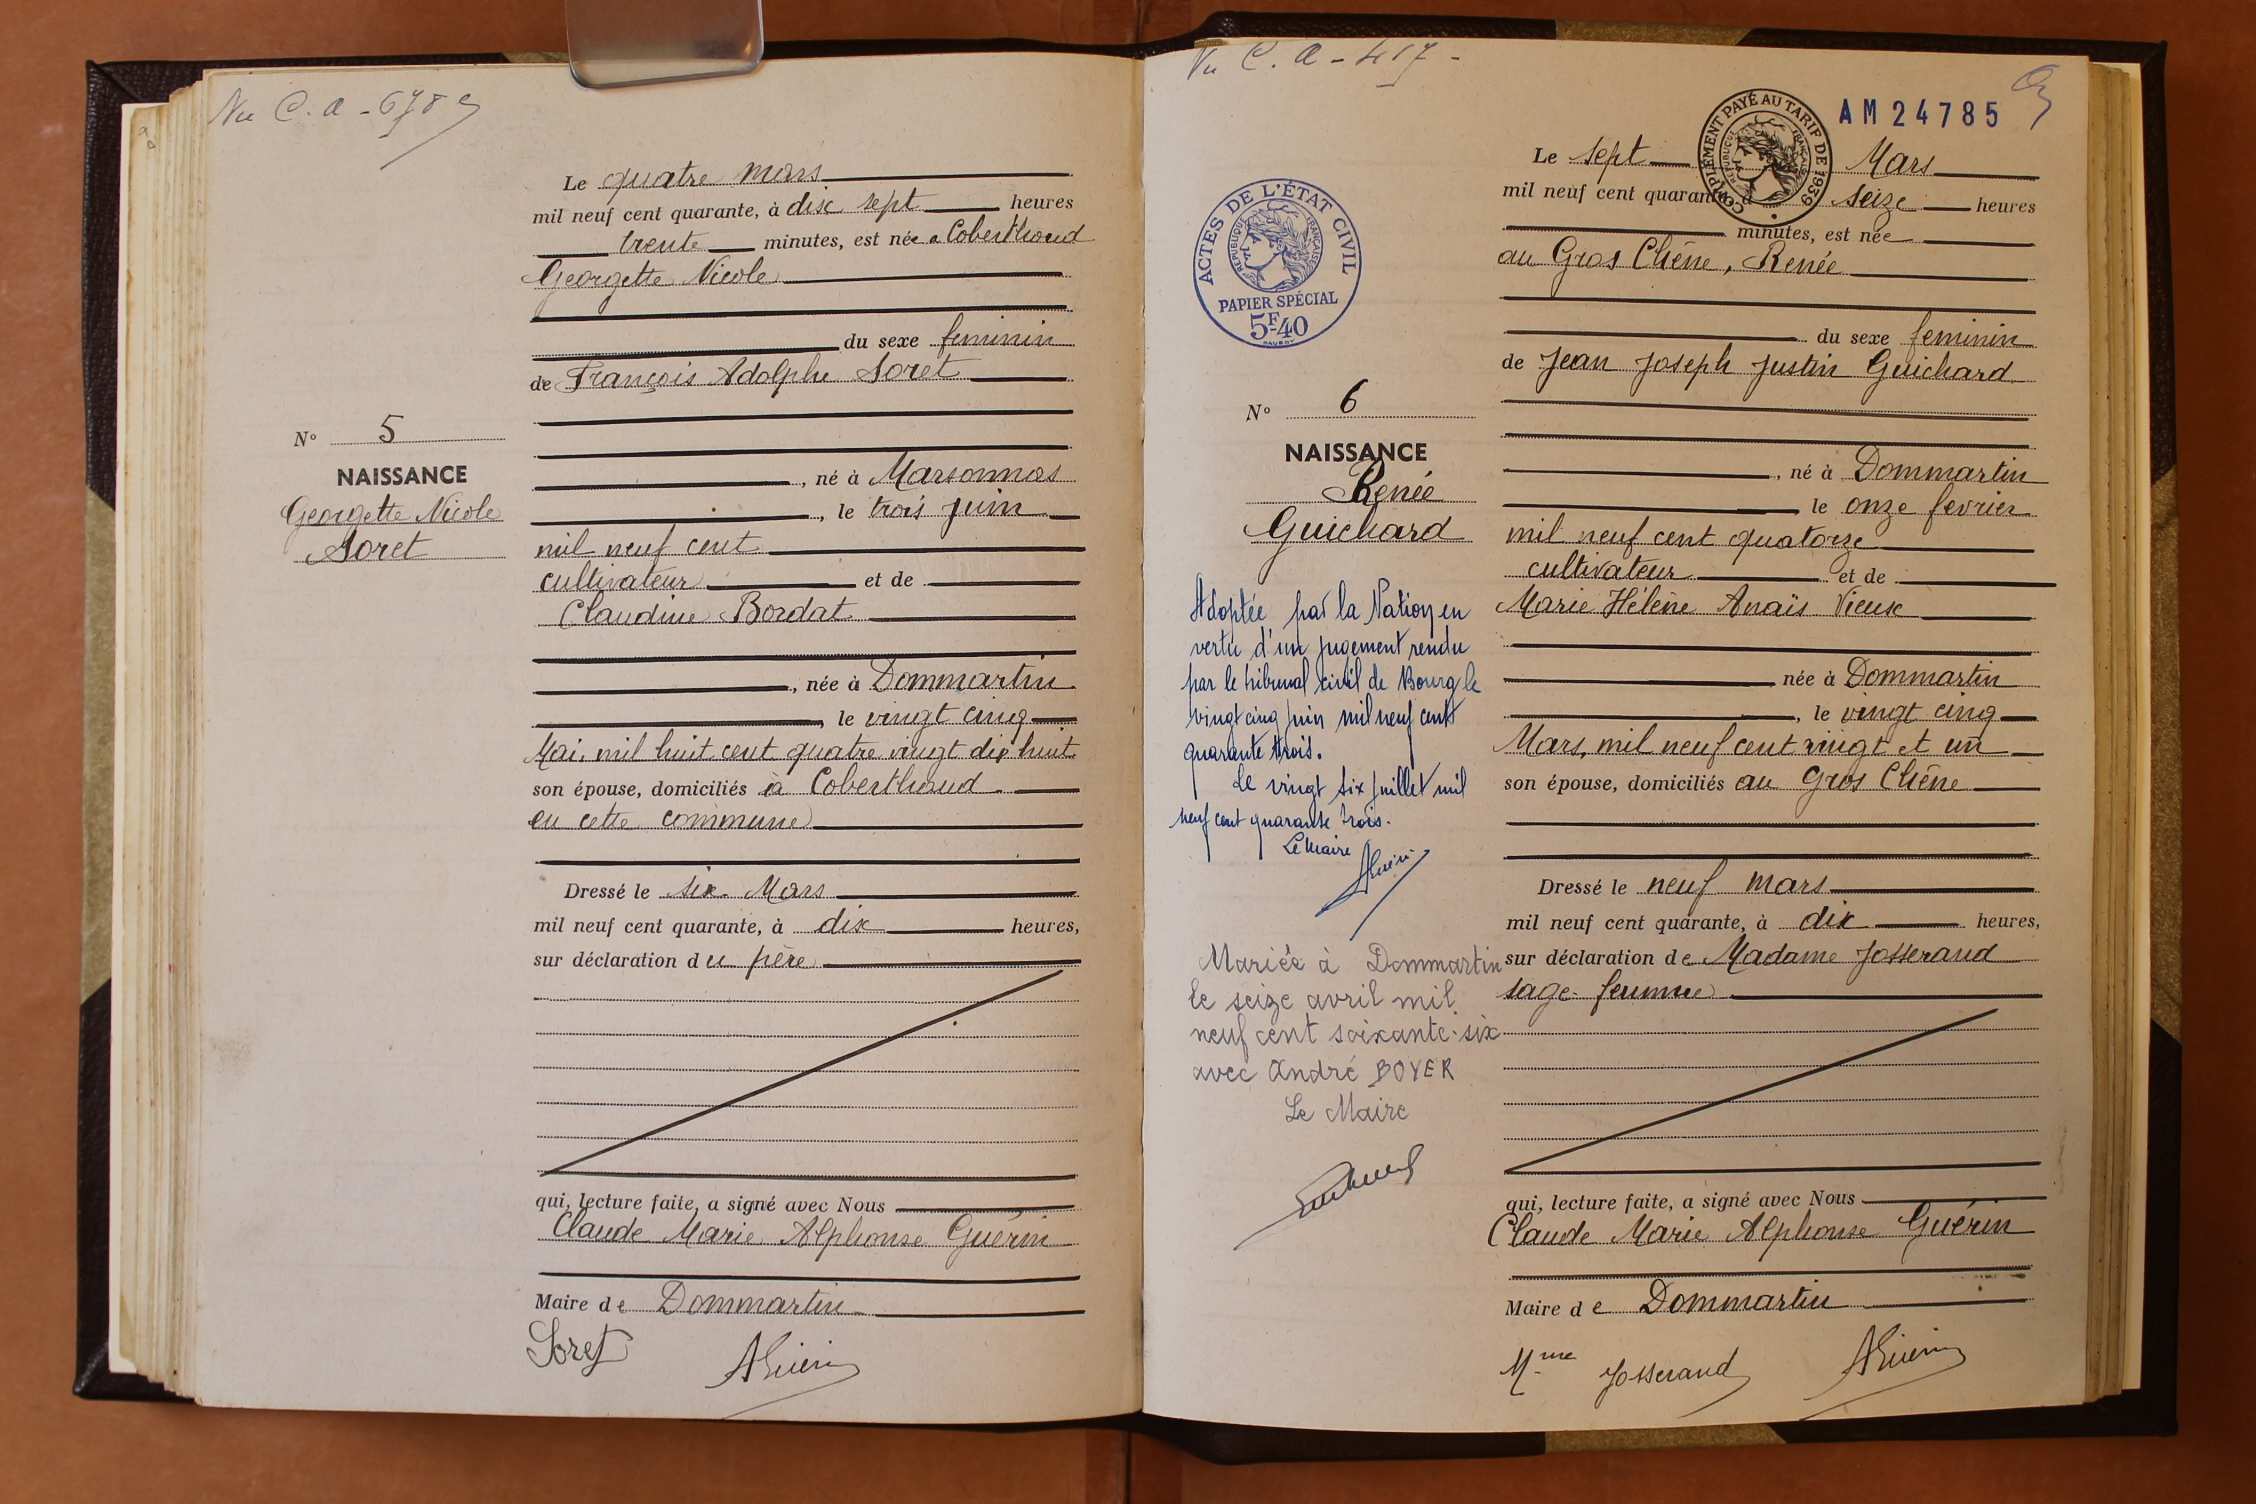 Nu C. a - 678
Le quatre mars
mil neuf cent quarante, à dix sept heures
trente minutes, est née a Coberthoud
Georgette Nicole
du sexe feminin
de François Adolphe Soret
N° 5
NAISSANCE
Georgette Nicole
Soret
, né à Marsonnas
, le trois juin
mil neuf cent
cultivateur et de
Claudine Bordat
, née à Dommartin
, le vingt cinq
Mai, mil huit cent quatre vingt dix huit
son épouse, domiciliés à Coberthoud
en cette commune
Dressé le six Mars
mil neuf cent quarante, à dix heures,
sur déclaration du père
qui, lecture faite, a signé avec Nous
Claude Marie Alphonse Guérin
Maire de Dommartin
Soret
AGuérin
Nu C. a - 417 -
COMPLÉMENT PAYÉ AU TARIF DE 1939
RÉPUBLIQUE FRANÇAISE
AM 24785
Le sept Mars
mil neuf cent quarante, à seize heures
minutes, est née
au Gros Chêne, Renée
ACTES DE L'ÉTAT CIVIL
RÉPUBLIQUE FRANÇAISE
PAPIER SPÉCIAL
5F40
du sexe feminin
de Jean Joseph Justin Guichard
N° 6
NAISSANCE
Renée
Guichard
, né à Dommartin
le onze fevrier
mil neuf cent quatorze
cultivateur et de
Marie Hélène Anaïs Vieux
née à Dommartin
, le vingt cinq
Mars, mil neuf cent vingt et un
son épouse, domiciliés au Gros Chêne
Adoptée par la Nation en
vertu d'un jugement rendu
par le tribunal civil de Bourg le
vingt cinq juin mil neuf cent
quarante trois.
Le vingt six juillet mil
neuf cent quarante trois.
Le Maire
AGuérin
Dressé le neuf mars
mil neuf cent quarante, à dix heures,
sur déclaration de Madame Josserand
sage-femme
Mariée à Dommartin
le seize avril mil
neuf cent soixante-six
avec André BOYER
Le Maire
qui, lecture faite, a signé avec Nous
Claude Marie Alphonse Guérin
Maire de Dommartin
Mme Josserand
AGuérin